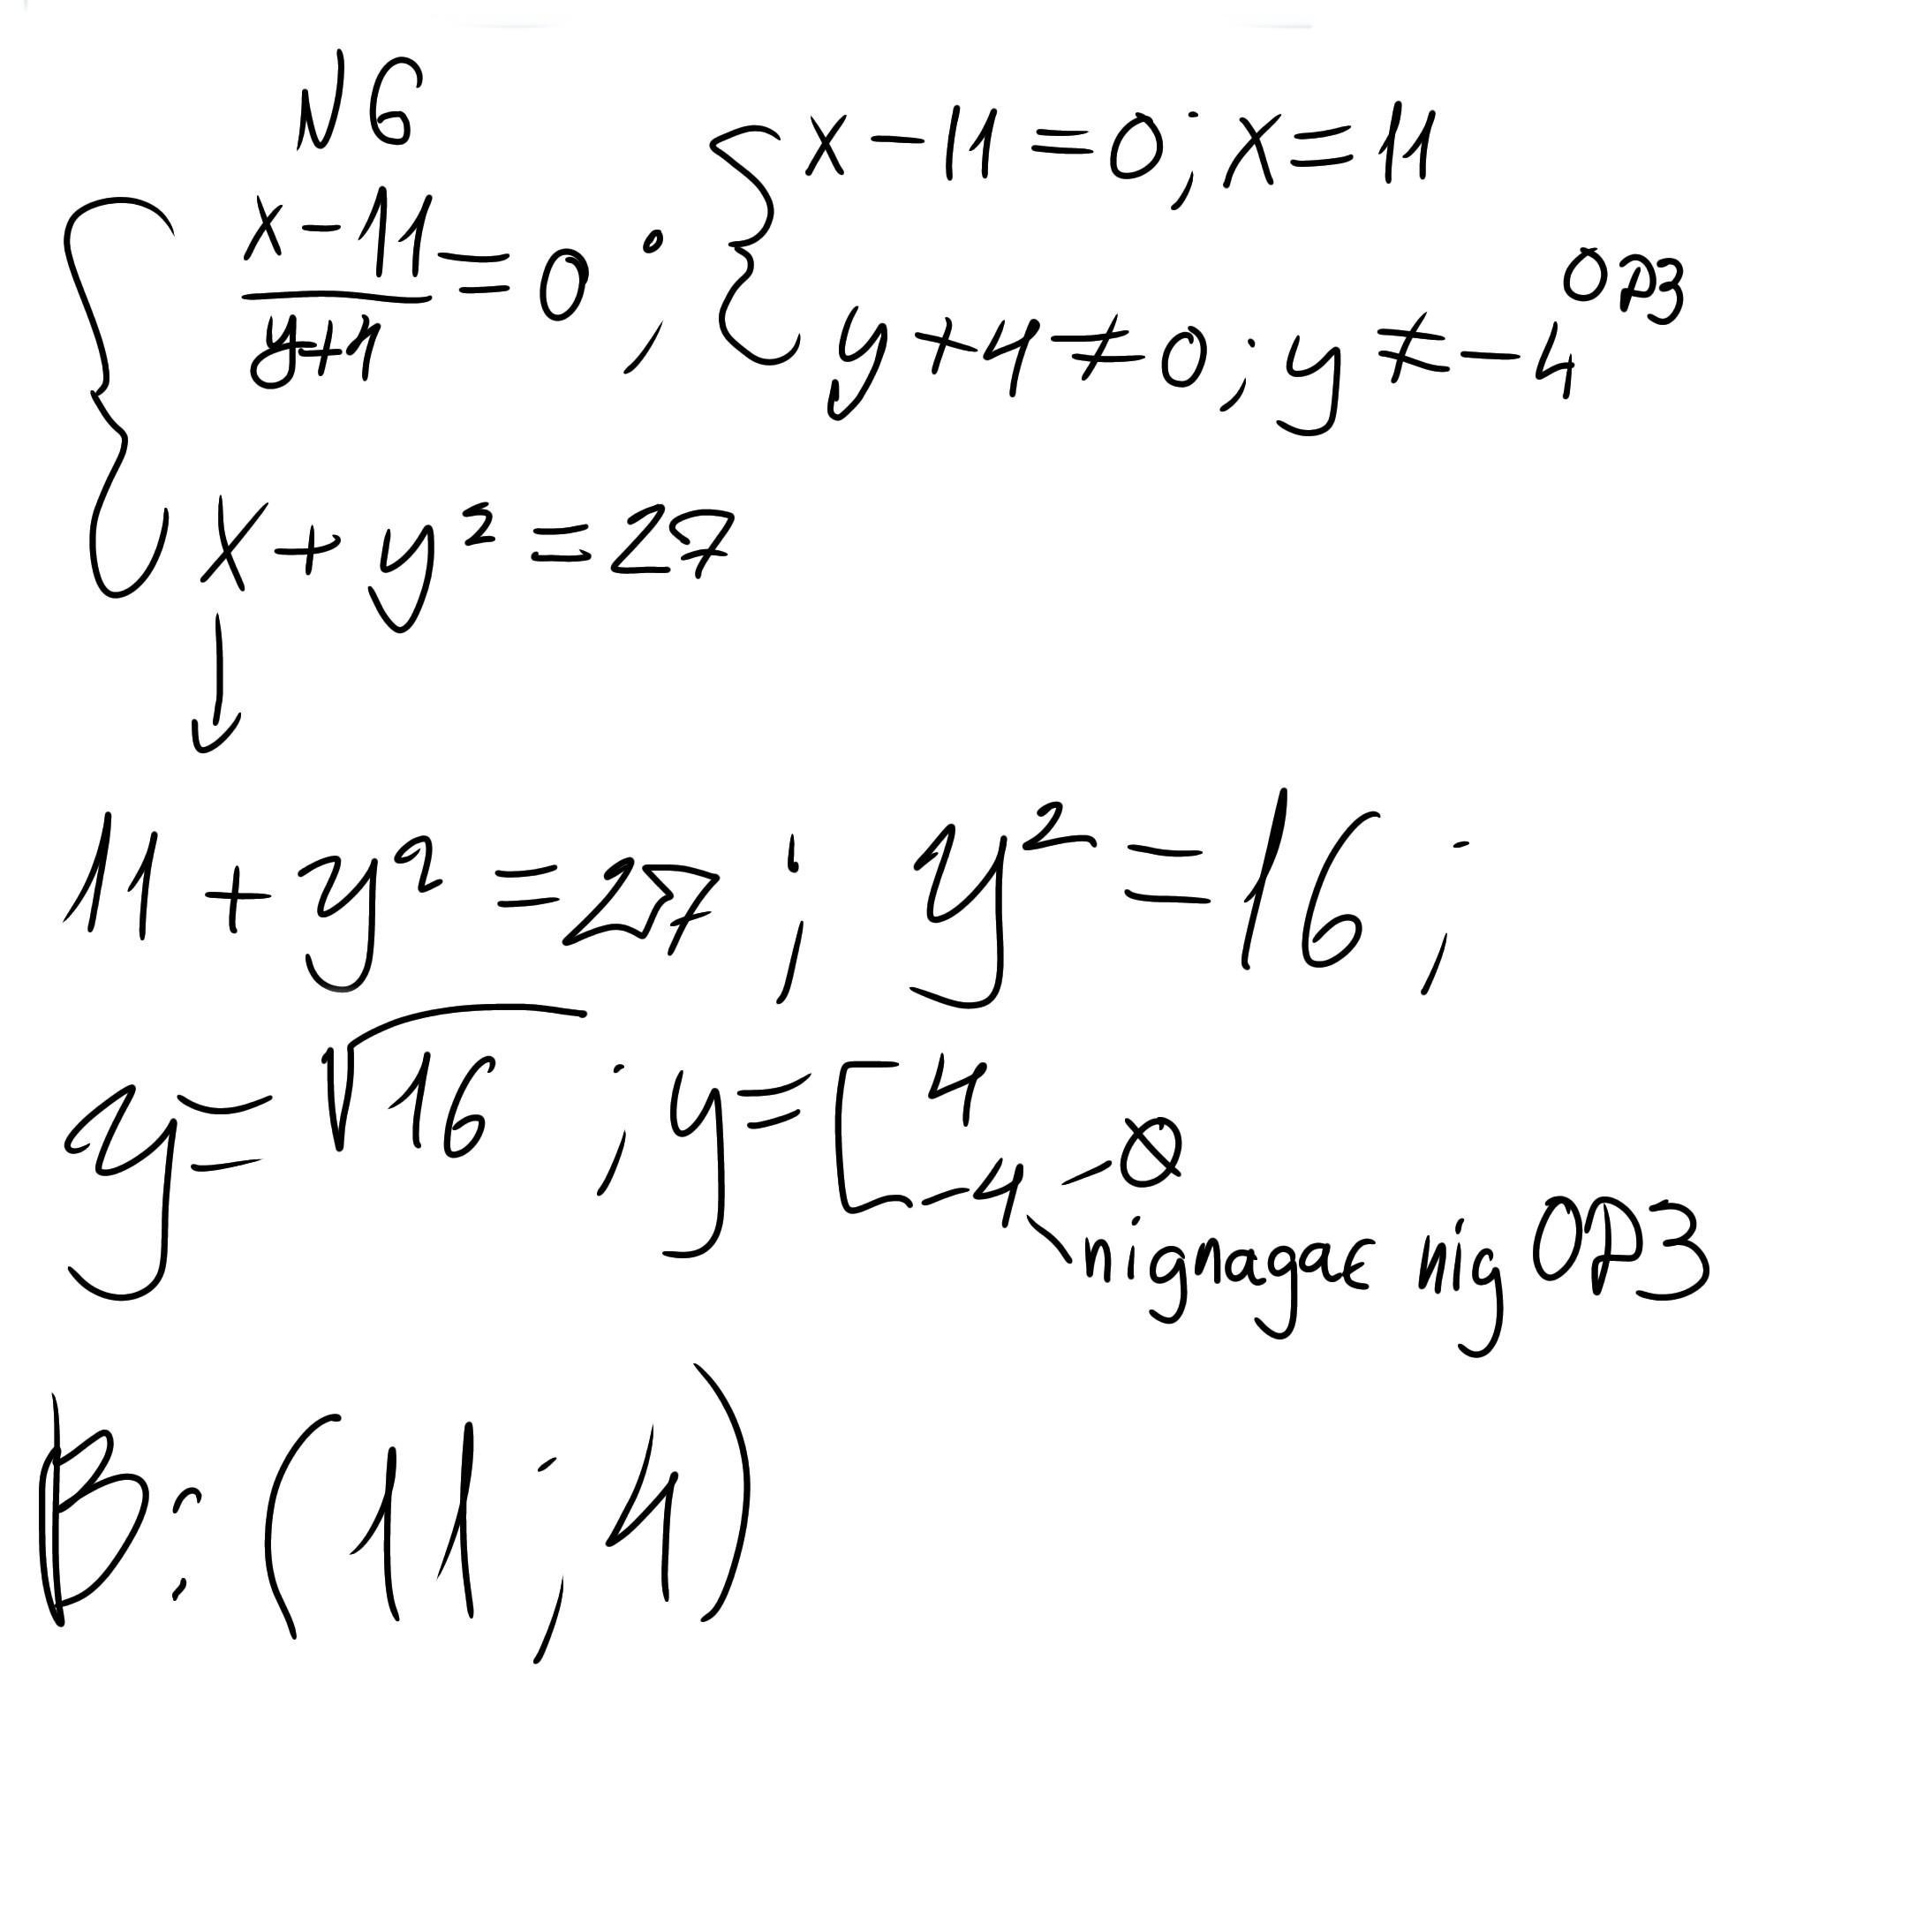 N6
{ (x-11)/(y+4) = 0 ; { x-11=0; x=11
y+4≠0; y≠-4 ОДЗ
x+y²=27
11+y²=27; y²=16;
y=√16; y=[ 4
-4 - ∅
підпадає під ОДЗ
В: (11; 4)